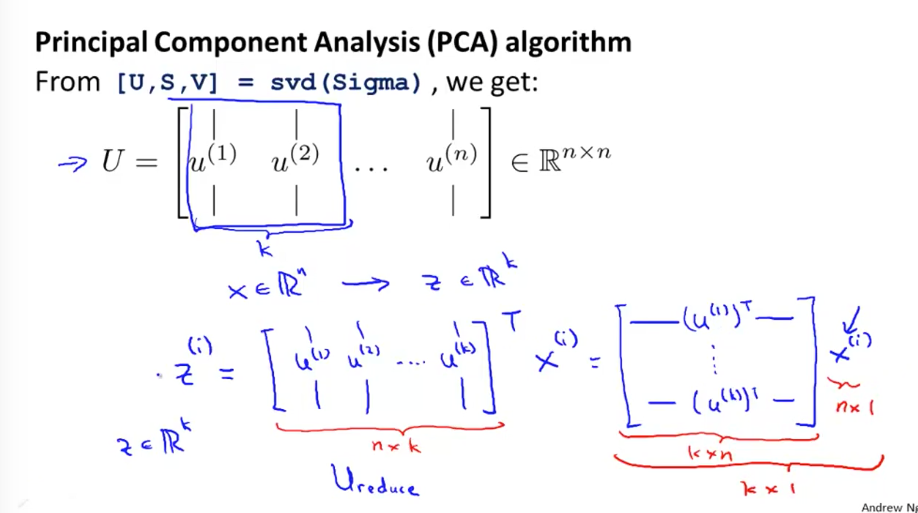 Principal Component Analysis (PCA) algorithm
From [U,S,V] = svd(Sigma), we get:
→ U = [ u^(1) u^(2) ... u^(n) ] ∈ ℝ^(n×n)
k
x ∈ ℝ^n → z ∈ ℝ^k
z^(i) = [ u^(1) u^(2) .... u^(k) ]^T x^(i) = [ — (u^(1))^T — ⋮ — (u^(k))^T — ] x^(i)
z ∈ ℝ^k
n×k
k×n
n×1
Ureduce
k×1
Andrew N